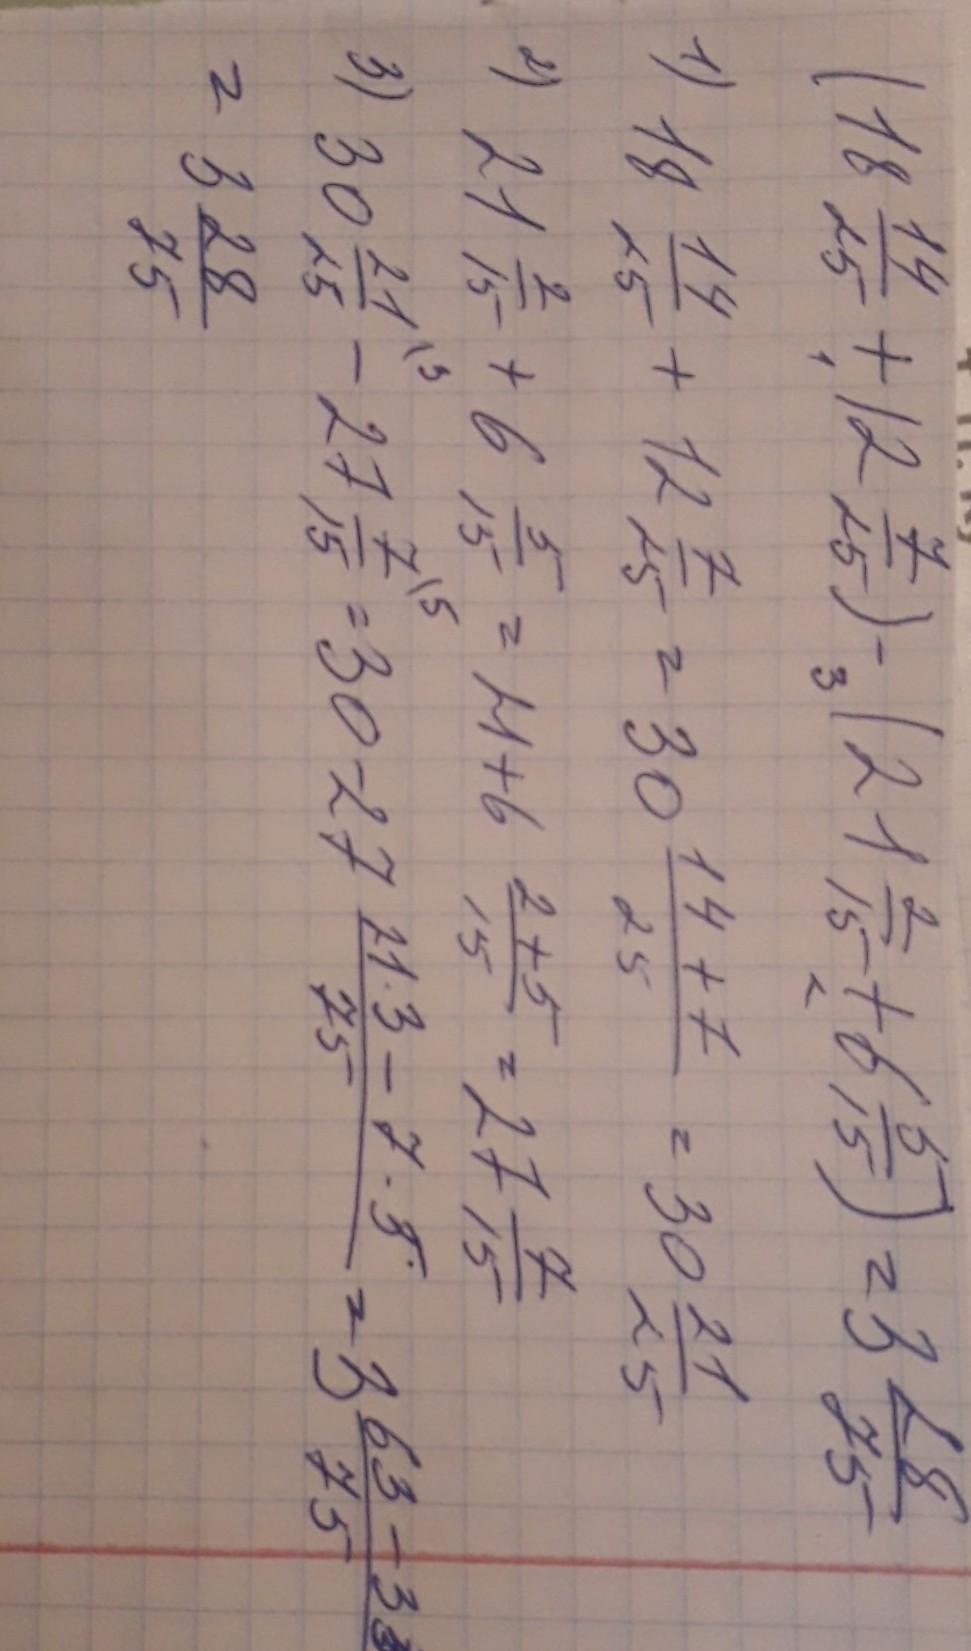 (18 14/25 + 12 7/25) - (21 2/15 + 6 5/15) = 3 28/75
1 3 2
1) 18 14/25 + 12 7/25 = 30 (14+7)/25 = 30 21/25
2) 21 2/15 + 6 5/15 = 21+6 (2+5)/15 = 27 7/15
3) 30 21\3/25 - 27 7\5/15 = 30-27 (21·3-7·5)/75 = 3 (63-35)/75
= 3 28/75